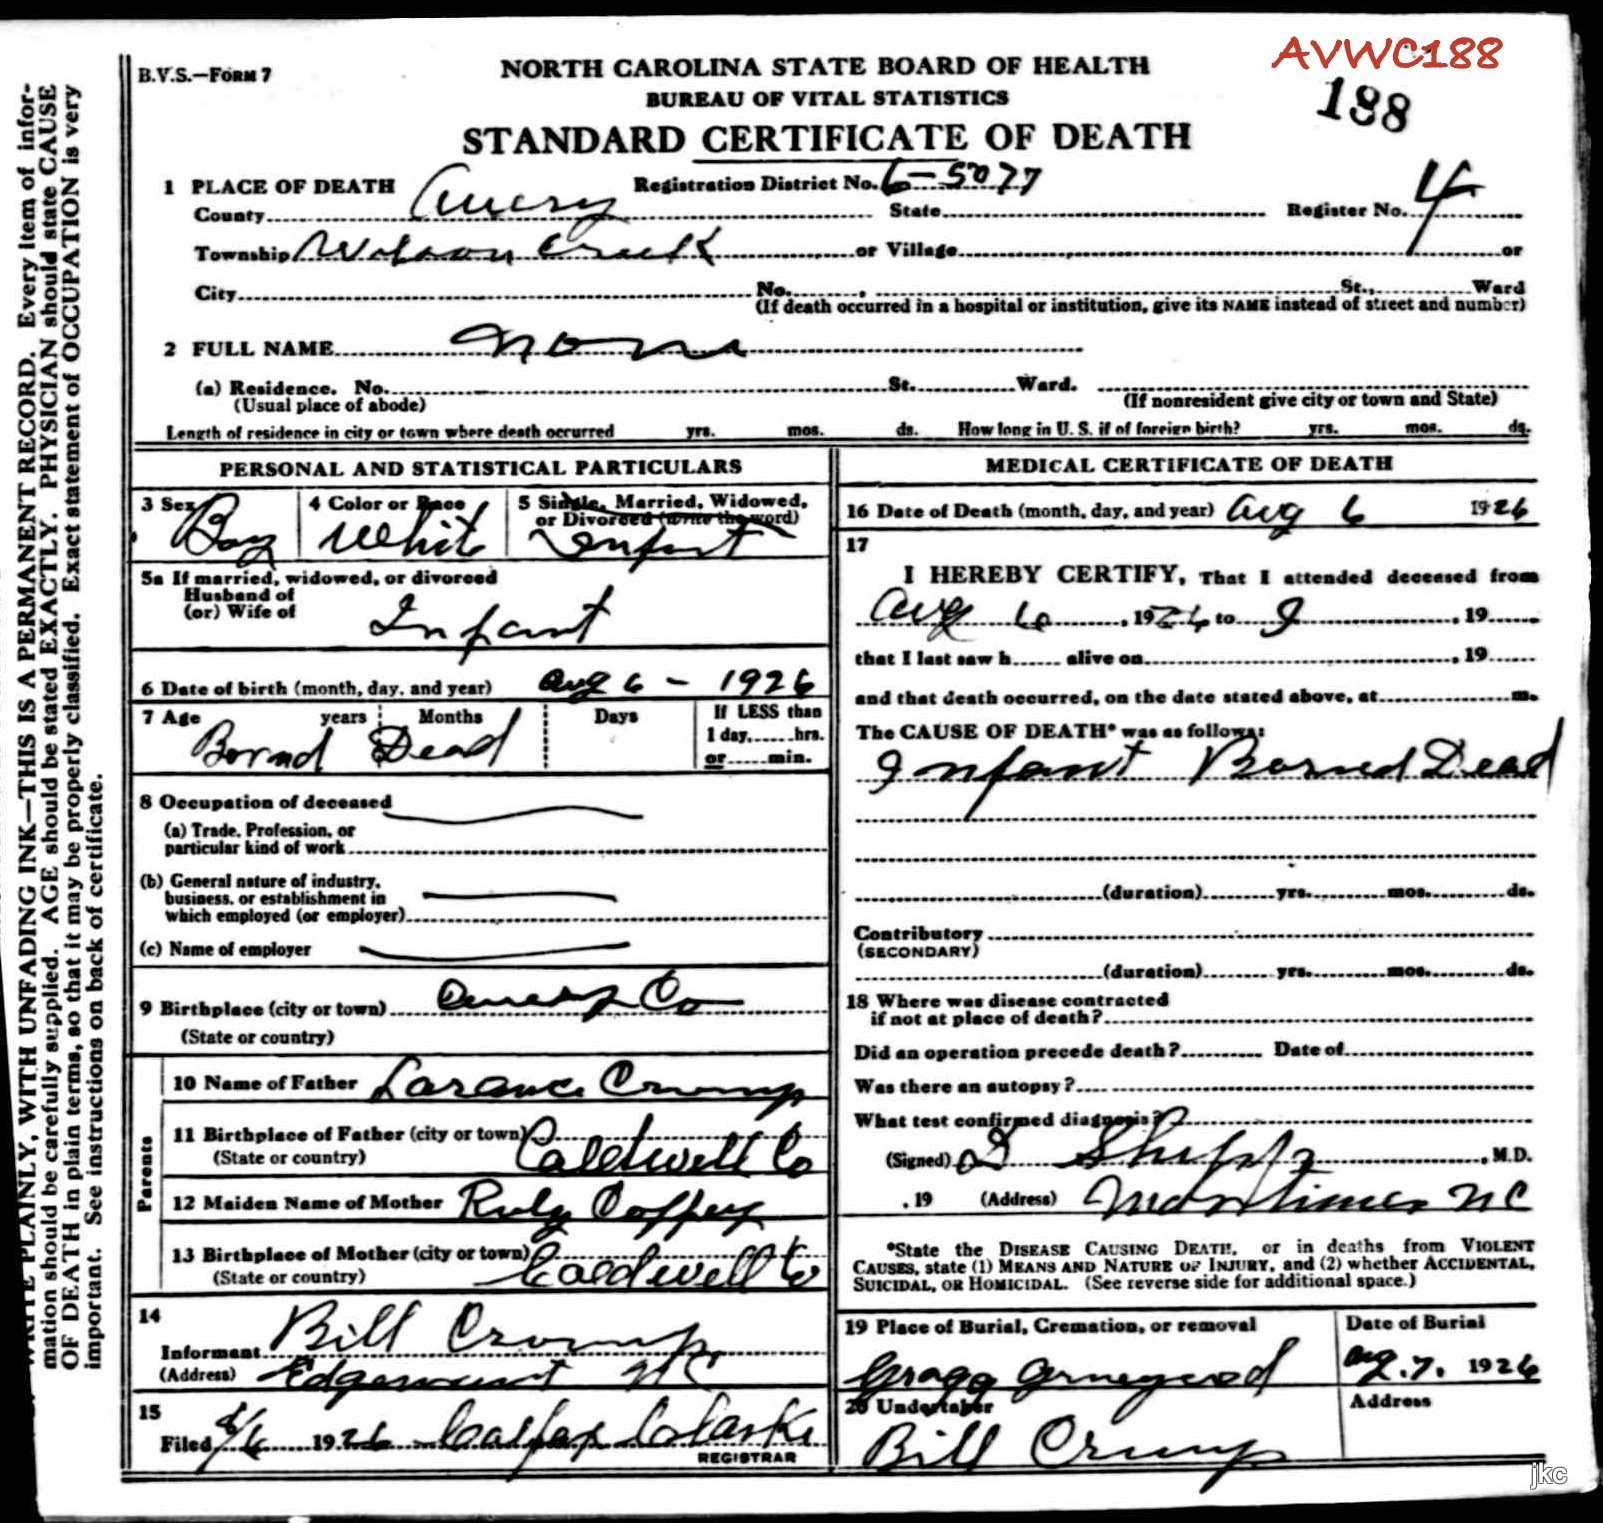 AVWC188
188
B.V.S.—FORM 7
NORTH CAROLINA STATE BOARD OF HEALTH
BUREAU OF VITAL STATISTICS
STANDARD CERTIFICATE OF DEATH
1 PLACE OF DEATH Registration District No. 6-5077
County Avery State Register No. 4
Township Wilson Creek or Village or
City No. St., Ward
(If death occurred in a hospital or institution, give its NAME instead of street and number)
2 FULL NAME None
(a) Residence. No. St. Ward.
(Usual place of abode) (If nonresident give city or town and State)
Length of residence in city or town where death occurred yrs. mos. ds. How long in U. S. if of foreign birth? yrs. mos. ds.
PERSONAL AND STATISTICAL PARTICULARS
3 Sex Boy 4 Color or Race White 5 Single, Married, Widowed,
or Divorced (write the word)
Infant
5a If married, widowed, or divorced
Husband of
(or) Wife of Infant
6 Date of birth (month, day, and year) Aug 6 - 1926
7 Age years Months Days If LESS than
1 day, hrs.
or min.
Bornd Dead
8 Occupation of deceased
(a) Trade, Profession, or
particular kind of work
(b) General nature of industry,
business, or establishment in
which employed (or employer)
(c) Name of employer
9 Birthplace (city or town) Avery Co
(State or country)
Parents
10 Name of Father Larance Crump
11 Birthplace of Father (city or town)
(State or country) Caldwell Co
12 Maiden Name of Mother Ruby Coffey
13 Birthplace of Mother (city or town)
(State or country) Caldwell Co
14
Informant Bill Crump
(Address) Edgemont NC
15
Filed 8/6 1926 Clarke
REGISTRAR
MEDICAL CERTIFICATE OF DEATH
16 Date of Death (month, day, and year) Aug 6 1926
17
I HEREBY CERTIFY, That I attended deceased from
Aug 6, 1926 to , 19
that I last saw h alive on , 19
and that death occurred, on the date stated above, at m.
The CAUSE OF DEATH* was as follows:
Infant Borned Dead
(duration) yrs. mos. ds.
Contributory
(SECONDARY)
(duration) yrs. mos. ds.
18 Where was disease contracted
if not at place of death?
Did an operation precede death? Date of
Was there an autopsy?
What test confirmed diagnosis?
(Signed) Shipp, M.D.
, 19 (Address) Mortimer NC
*State the DISEASE CAUSING DEATH, or in deaths from VIOLENT
CAUSES, state (1) MEANS AND NATURE OF INJURY, and (2) whether ACCIDENTAL,
SUICIDAL, OR HOMICIDAL. (See reverse side for additional space.)
19 Place of Burial, Cremation, or removal Date of Burial
Gragg Graveyard Aug. 7. 1926
20 Undertaker Address
Bill Crump
WRITE PLAINLY, WITH UNFADING INK—THIS IS A PERMANENT RECORD. Every item of infor-
mation should be carefully supplied. AGE should be stated EXACTLY. PHYSICIAN should state CAUSE
OF DEATH in plain terms, so that it may be properly classified. Exact statement of OCCUPATION is very
important. See instructions on back of certificate.
jkc